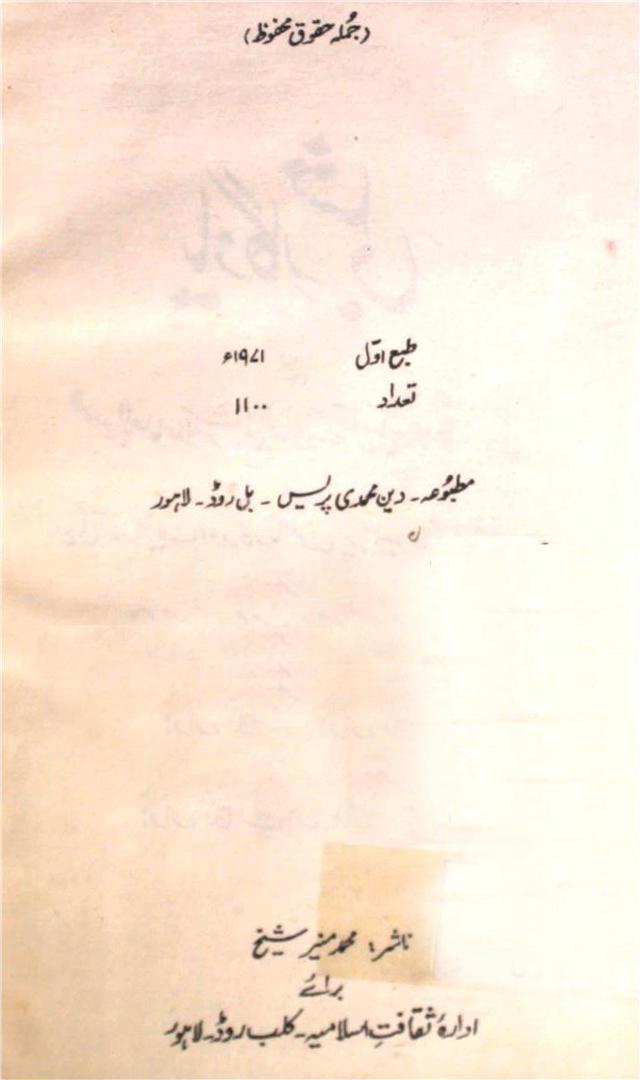 (جُملہ حقوق محفوظ)
طبع اوّل ۱۹۷۱ء
تعداد ۱۱۰۰
مطبُوعہ ۔ دین محمدی پریس ۔ بل روڈ ۔ لاہور
ناشر: محمد منیر شیخ
برائے
ادارۂ ثقافتِ اسلامیہ ۔ کلب روڈ ۔ لاہور